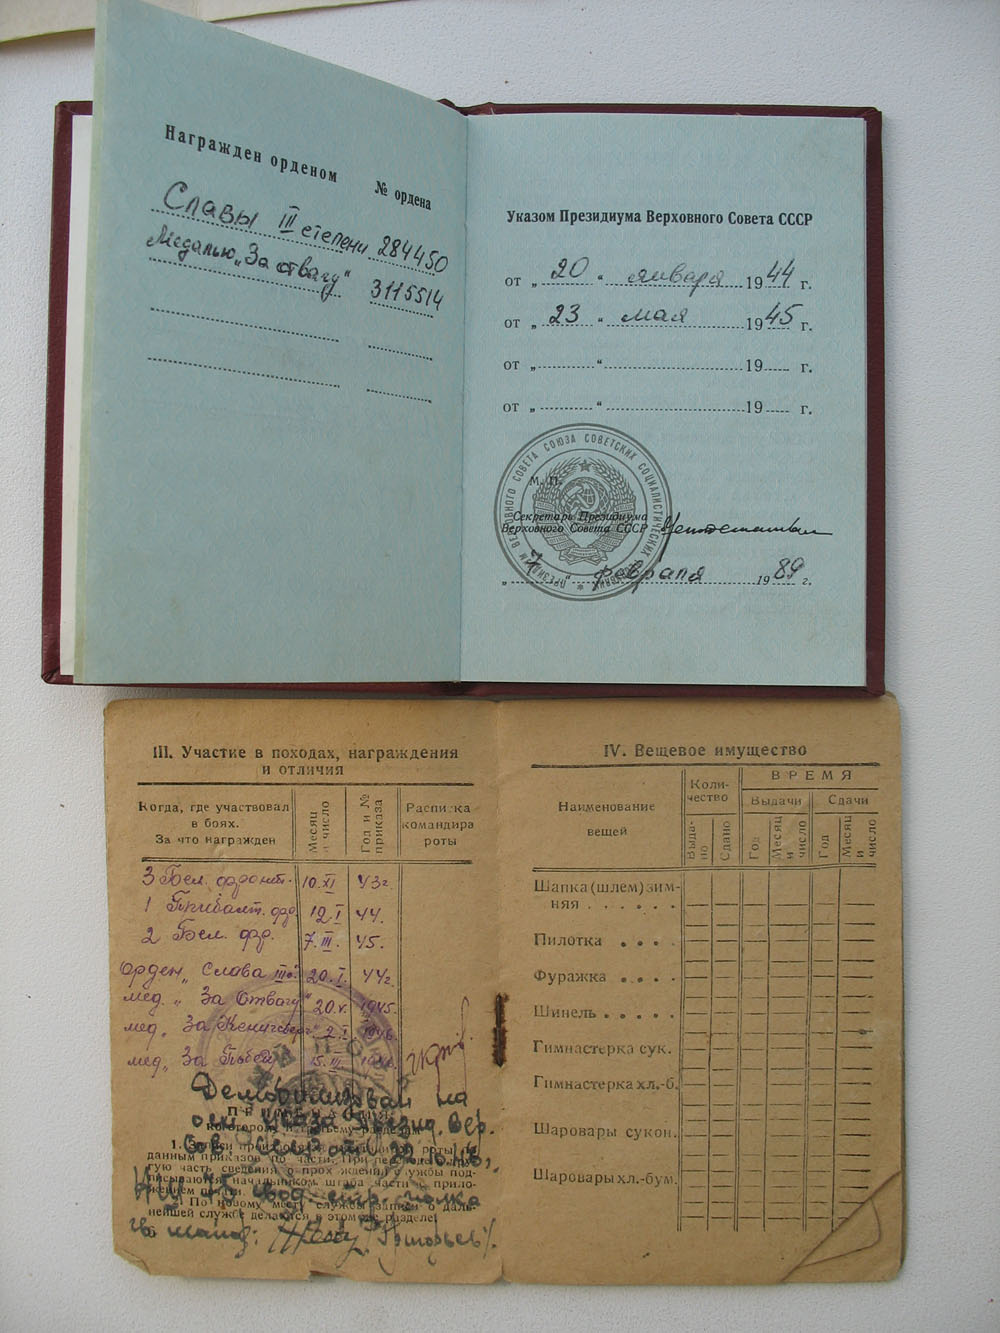 Награжден орденом № ордена
Славы III степени 284450
Медалью „За отвагу" 3115514
Указом Президиума Верховного Совета СССР
от „ 20 “ января 1944 г.
от „ 23 “ мая 1945 г.
от „ “ 19 г.
от „ “ 19 г.
М. П.
Секретарь Президиума
Верховного Совета СССР
„ 7 “ февраля 1989 г.
III. Участие в походах, награждения
и отличия
Когда, где участвовал
в боях.
За что награжден
Месяц
и число
Год и №
приказа
Расписка
командира
роты
3 Бел. фронт. 10.XI 43г.
1 Прибалт. фр. 12.I 44.
2 Бел. фр. 7.III. 45.
Орден „Слава III" 20.I. 44г.
мед. „За Отвагу" 20.V. 1945.
мед. „За Кенигсберг" 2.I 1946.
мед. „За Победу" 15.III 1946.
Демобилизован на
осн. Указа Презид. Вер.
Сов. СССР от
1. Записи производятся
данным приказов по части. При переводе в дру-
гую часть сведения о прохождении службы под-
писываются начальником штаба части с прило-
жением печати.
2. По новому месту службы записи о даль-
нейшей службе делаются в этом же разделе.
НШ 75 стр. полка
гв. майор: Григорьев
IV. Вещевое имущество
Наименование
вещей
Коли-
чество
Выда-
но
Сдано
ВРЕМЯ
Выдачи Сдачи
Год
Месяц
и
число
Год
Месяц
и
число
Шапка (шлем) зим-
няя . . . . . .
Пилотка . . . .
Фуражка . . . .
Шинель . . . . .
Гимнастерка сук.
Гимнастерка хл.-б.
Шаровары сукон.
Шаровары хл.-бум.